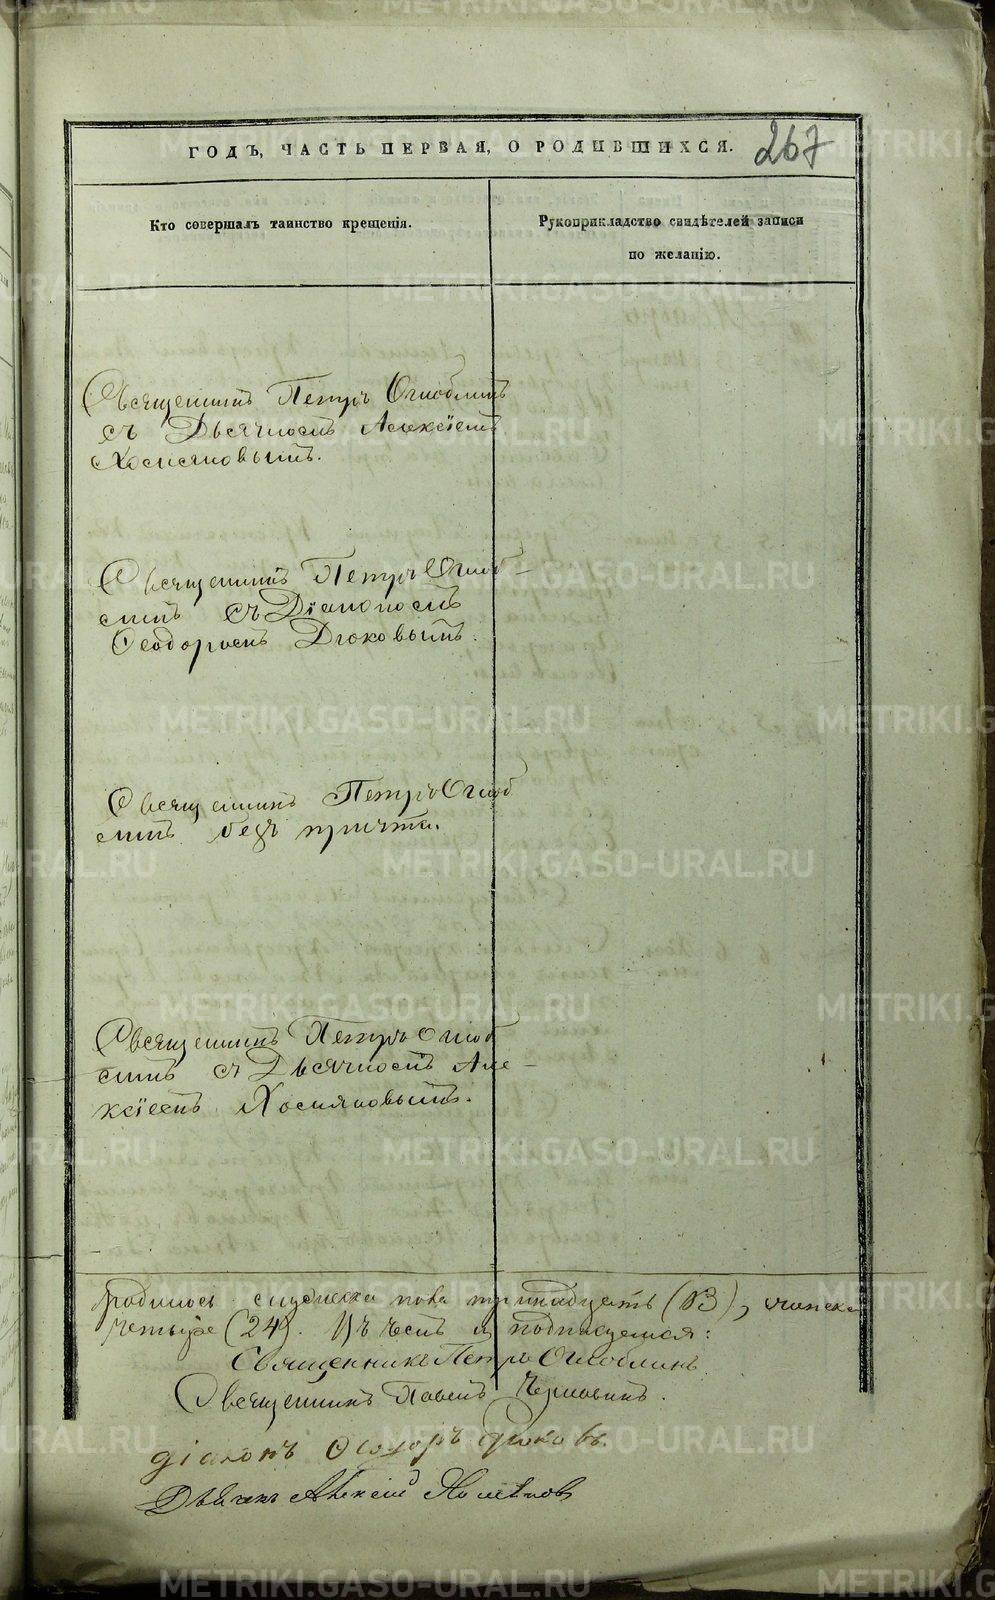 267
ГОДЪ, ЧАСТЬ ПЕРВАЯ, О РОДИВШИХСЯ.
Кто совершалъ таинство крещенія.
Рукоприкладство свидѣтелей записи
по желанію.
Священникъ Петръ Оглоблинъ
съ Дьячкомъ Алексіемъ
Хомяковымъ.
Священникъ Петръ Оглоб-
линъ съ Діакономъ
Ѳеодоромъ Дюковымъ.
Священникъ Петръ Оглоб
линъ безъ причта.
Священникъ Петръ Оглоб
линъ съ Дьячкомъ Але-
ксіемъ Хомяковымъ.
родилось мужеска пола тринадцать (13), женска
четыре (24). Въ чемъ и подписуемся:
Священникъ Петръ Оглоблинъ
Священникъ Павелъ
діаконъ Ѳеодоръ Дюковъ.
Дьячекъ Алексій Хомяковъ
METRIKI.GASO-URAL.RU